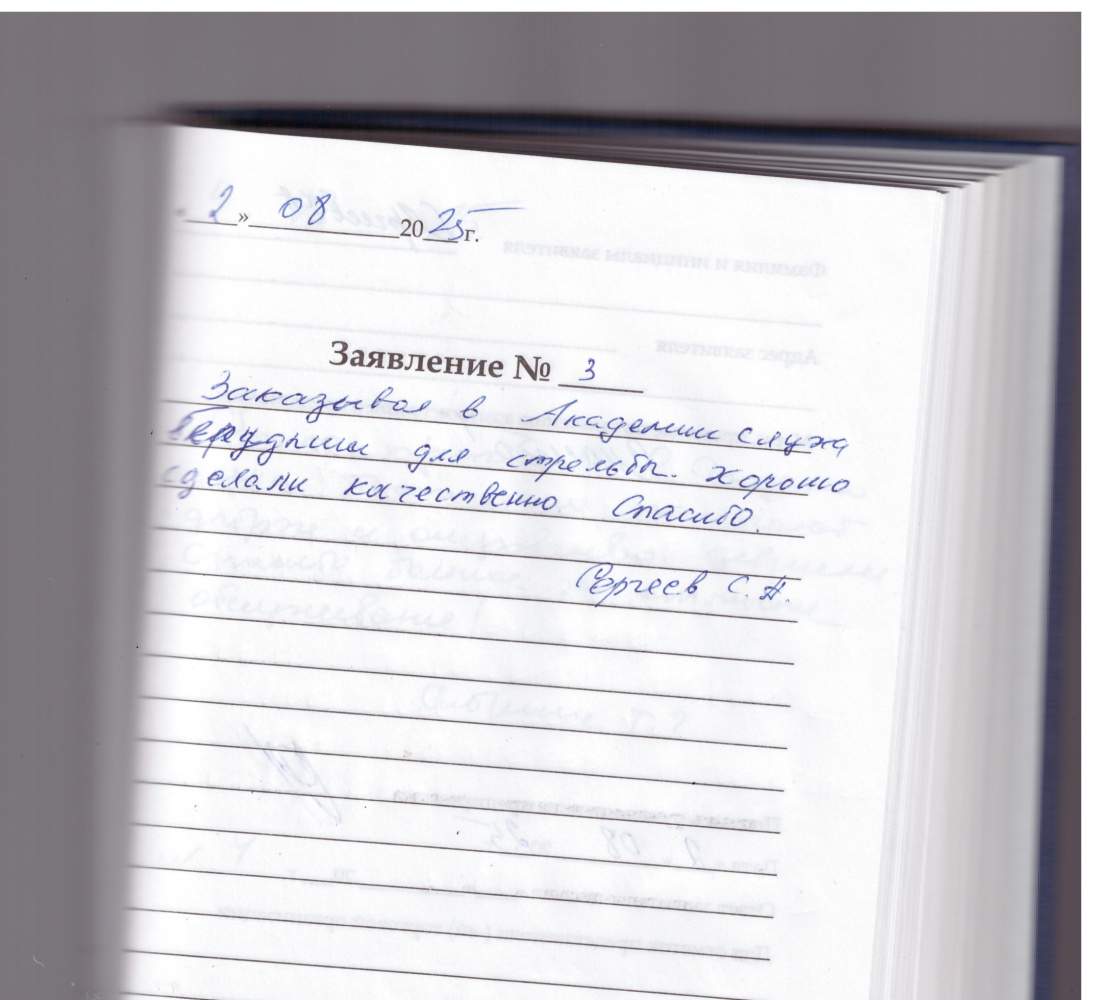 2 » 08 2025 г.
Заявление № 3
Заказывал в Академии слуха
для стрельбы. Хорошо
сделали качественно. Спасибо.
Сергеев С. Н.